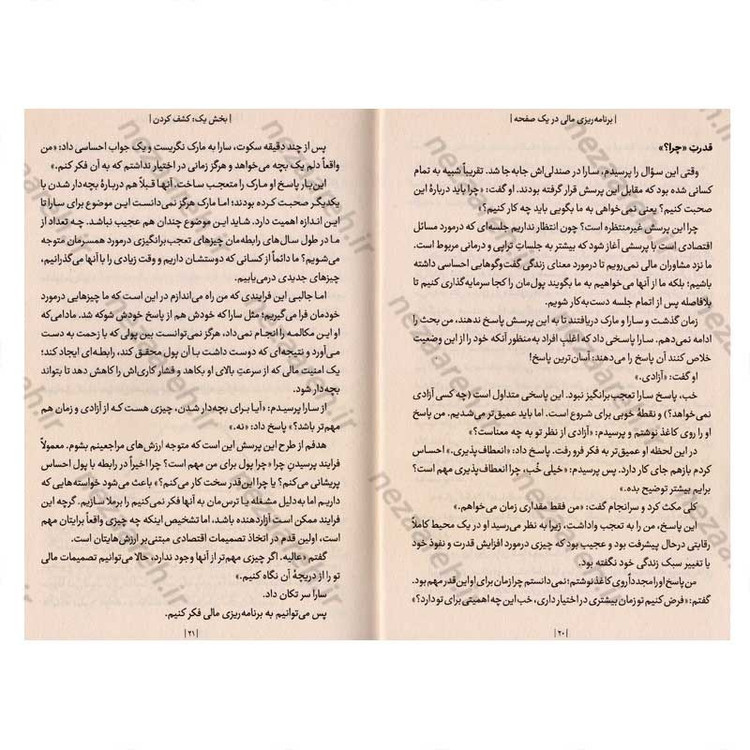 | برنامه‌ریزی مالی در یک صفحه |
قدرتِ «چرا؟»
وقتی این سؤال را پرسیدم، سارا در صندلی‌اش جابه‌جا شد. تقریباً شبیه به تمام
کسانی شده بود که مقابل این پرسش قرار گرفته بودند. او گفت: «چرا باید دربارهٔ این
صحبت کنیم؟ یعنی نمی‌خواهی به ما بگویی باید چه کار کنیم؟»
چرا این پرسش غیرمنتظره است؟ چون انتظار نداریم جلسه‌ای که درمورد مسائل
اقتصادی است با پرسشی آغاز شود که بیشتر به جلساتِ تراپی و درمانی مربوط است.
ما نزد مشاوران مالی نمی‌رویم تا درمورد معنای زندگی گفت‌وگوهایی احساسی داشته
باشیم؛ بلکه ما از آنها می‌خواهیم به ما بگویند پول‌مان را کجا سرمایه‌گذاری کنیم تا
بلافاصله پس از اتمام جلسه دست‌به‌کار شویم.
زمان گذشت و سارا و مارک دریافتند تا به این پرسش پاسخ ندهند، من بحث را
ادامه نمی‌دهم. سارا پاسخی داد که اغلبِ افراد به منظور آنکه خود را از این وضعیت
خلاص کنند آن پاسخ را می‌دهند: آسان‌ترین پاسخ!
او گفت: «آزادی.»
خب، پاسخ سارا تعجب‌برانگیز نبود. این پاسخی متداول است (چه کسی آزادی
نمی‌خواهد؟) و نقطهٔ خوبی برای شروع است. اما باید عمیق‌تر می‌شدیم. من پاسخ
او را روی کاغذ نوشتم و پرسیدم: «آزادی از نظر تو به چه معناست؟»
در این لحظه او عمیق‌تر به فکر فرو رفت. پاسخ داد: «انعطاف‌پذیری.» احساس
کردم بازهم جای کار دارد. پس پرسیدم: «خیلی خُب، چرا انعطاف‌پذیری مهم است؟
برایم بیشتر توضیح بده.»
کلی مکث کرد و سرانجام گفت: «من فقط مقداری زمان می‌خواهم.»
این پاسخ، من را به تعجب واداشت، زیرا به نظر می‌رسید او در یک محیط کاملاً
رقابتی درحال پیشرفت بود و عجیب بود که چیزی درمورد افزایش قدرت و نفوذ خود
یا تغییر سبک زندگی خود نگفته بود.
من پاسخ او را مجدداً روی کاغذ نوشتم؛ نمی‌دانستم چرا زمان برای او این‌قدر مهم بود.
گفتم: «فرض کنیم تو زمان بیشتری در اختیار داری، خب این چه اهمیتی برای تو دارد؟»
| ۲۰ |
| بخش یک: کشف کردن |
پس از چند دقیقه سکوت، سارا به مارک نگریست و یک جواب احساسی داد: «من
واقعاً دلم یک بچه می‌خواهد و هرگز زمانی در اختیار نداشتم که به آن فکر کنم.»
این‌بار پاسخ او مارک را متعجب ساخت. آنها قبلاً هم دربارهٔ بچه‌دار شدن با
یکدیگر صحبت کرده بودند؛ اما مارک هرگز نمی‌دانست این موضوع برای سارا تا
این اندازه اهمیت دارد. شاید این موضوع چندان هم عجیب نباشد. چه تعداد از
ما در طول سال‌های رابطه‌مان چیزهای تعجب‌برانگیزی درمورد همسرمان متوجه
می‌شویم؟ ما دائماً از کسانی که دوستشان داریم و وقت زیادی را با آنها می‌گذرانیم،
چیزهای جدیدی درمی‌یابیم.
اما جالبی این فرایندی که من راه می‌اندازم در این است که ما چیزهایی درمورد
خودمان فرا می‌گیریم؛ مثل سارا که خودش هم از پاسخ خودش شوکه شد. مادامی‌که
او این مکالمه را انجام نمی‌داد، هرگز نمی‌توانست بین پولی که با زحمت به دست
می‌آورد و نتیجه‌ای که دوست داشت با آن پول محقق کند، رابطه‌ای ایجاد کند؛
یک امنیت مالی که از سرعتِ بالای او بکاهد و فشار کاری‌اش را کاهش دهد تا بتواند
بچه‌دار شود.
از سارا پرسیدم: «آیا برای بچه‌دار شدن، چیزی هست که از آزادی و زمان هم
مهم‌تر باشد؟» پاسخ داد: «نه.»
هدفم از طرح این پرسش این است که متوجه ارزش‌های مراجعینم بشوم. معمولاً
فرایند پرسیدنِ چرا «چرا پول برای من مهم است؟ چرا اخیراً در رابطه با پول احساس
پریشانی می‌کنم؟ یا چرا این‌قدر سخت کار می‌کنم؟» باعث می‌شود خواسته‌هایی که
داریم اما به‌دلیل مشغله یا ترس‌مان به آنها فکر نمی‌کنیم را برملا سازیم. گرچه این
فرایند ممکن است آزاردهنده باشد، اما تشخیص اینکه چه چیزی واقعاً برایتان مهم
است، اولین قدم در اتخاذ تصمیمات اقتصادی مبتنی بر ارزش‌هایتان است.
گفتم «عالیه. اگر چیزی مهم‌تر از آنها وجود ندارد، حالا می‌توانیم تصمیمات مالی
تو را از دریچهٔ آن نگاه کنیم.»
سارا سر تکان داد.
پس می‌توانیم به برنامه‌ریزی مالی فکر کنیم.
| ۲۱ |
nezaareh.ir